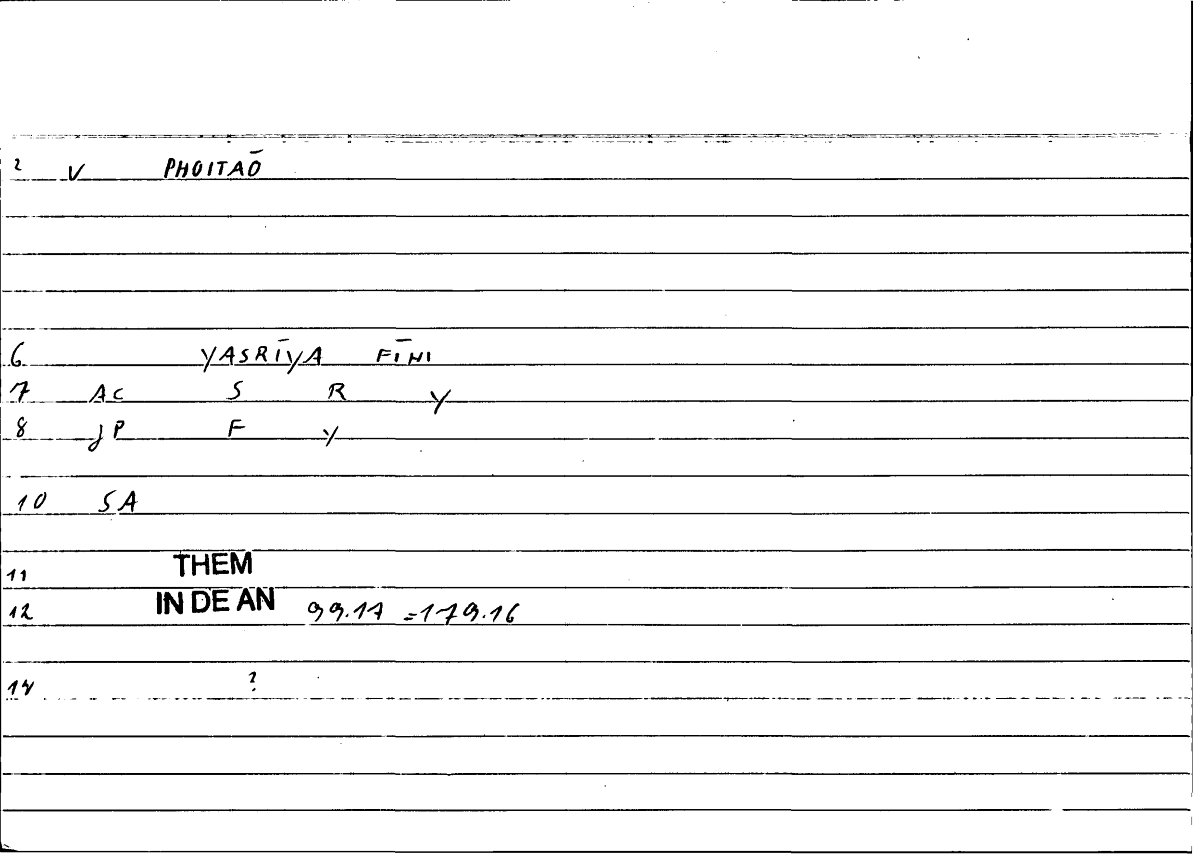 2 V PHOITAŌ
6 YASRĪYA FĪHI
7 AC S R Y
8 JP F Y
10 SA
11 THEM
12 IN DE AN 99.17 =179.16
14 ?